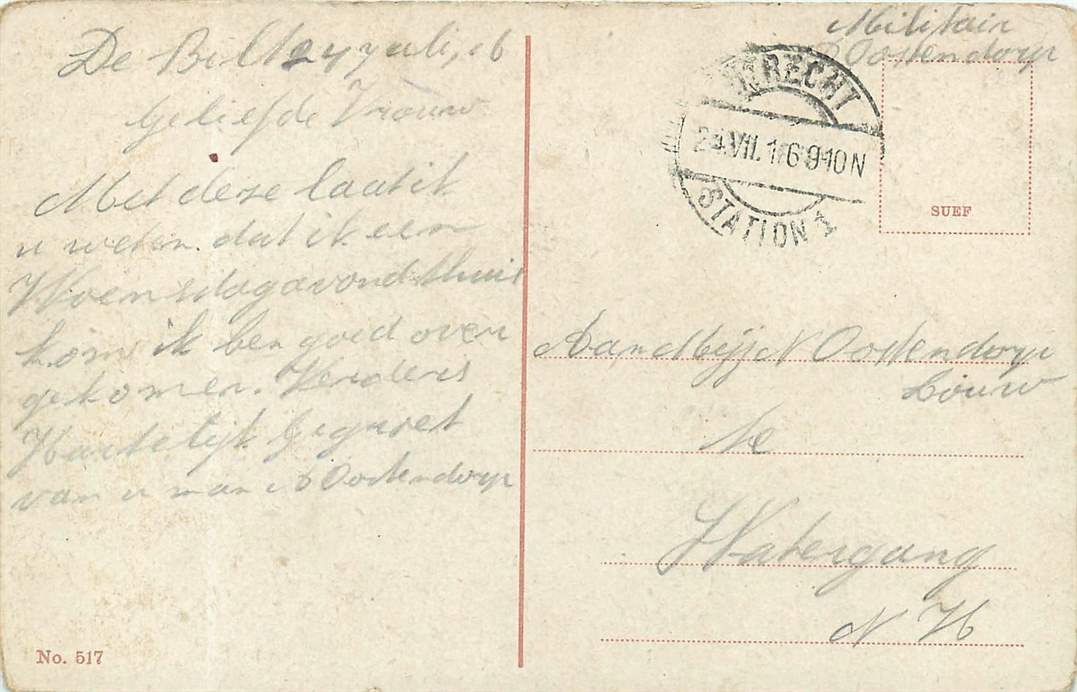 De Bilt 24 yuli, 16
Geliefde Vrouw
Met deze laat ik
u weten dat ik een
Woensdagavond thuis
kom ik ben goed over
gekomen. Verders
Hartelijk Gegroet
van u man Oostendorp
No. 517
Militair
Oostendorp
UTRECHT
24.VII.16 9-10N
STATION 1
SUEF
Aan Mejj N Oostendorp
Louw
te
Watergang
N H